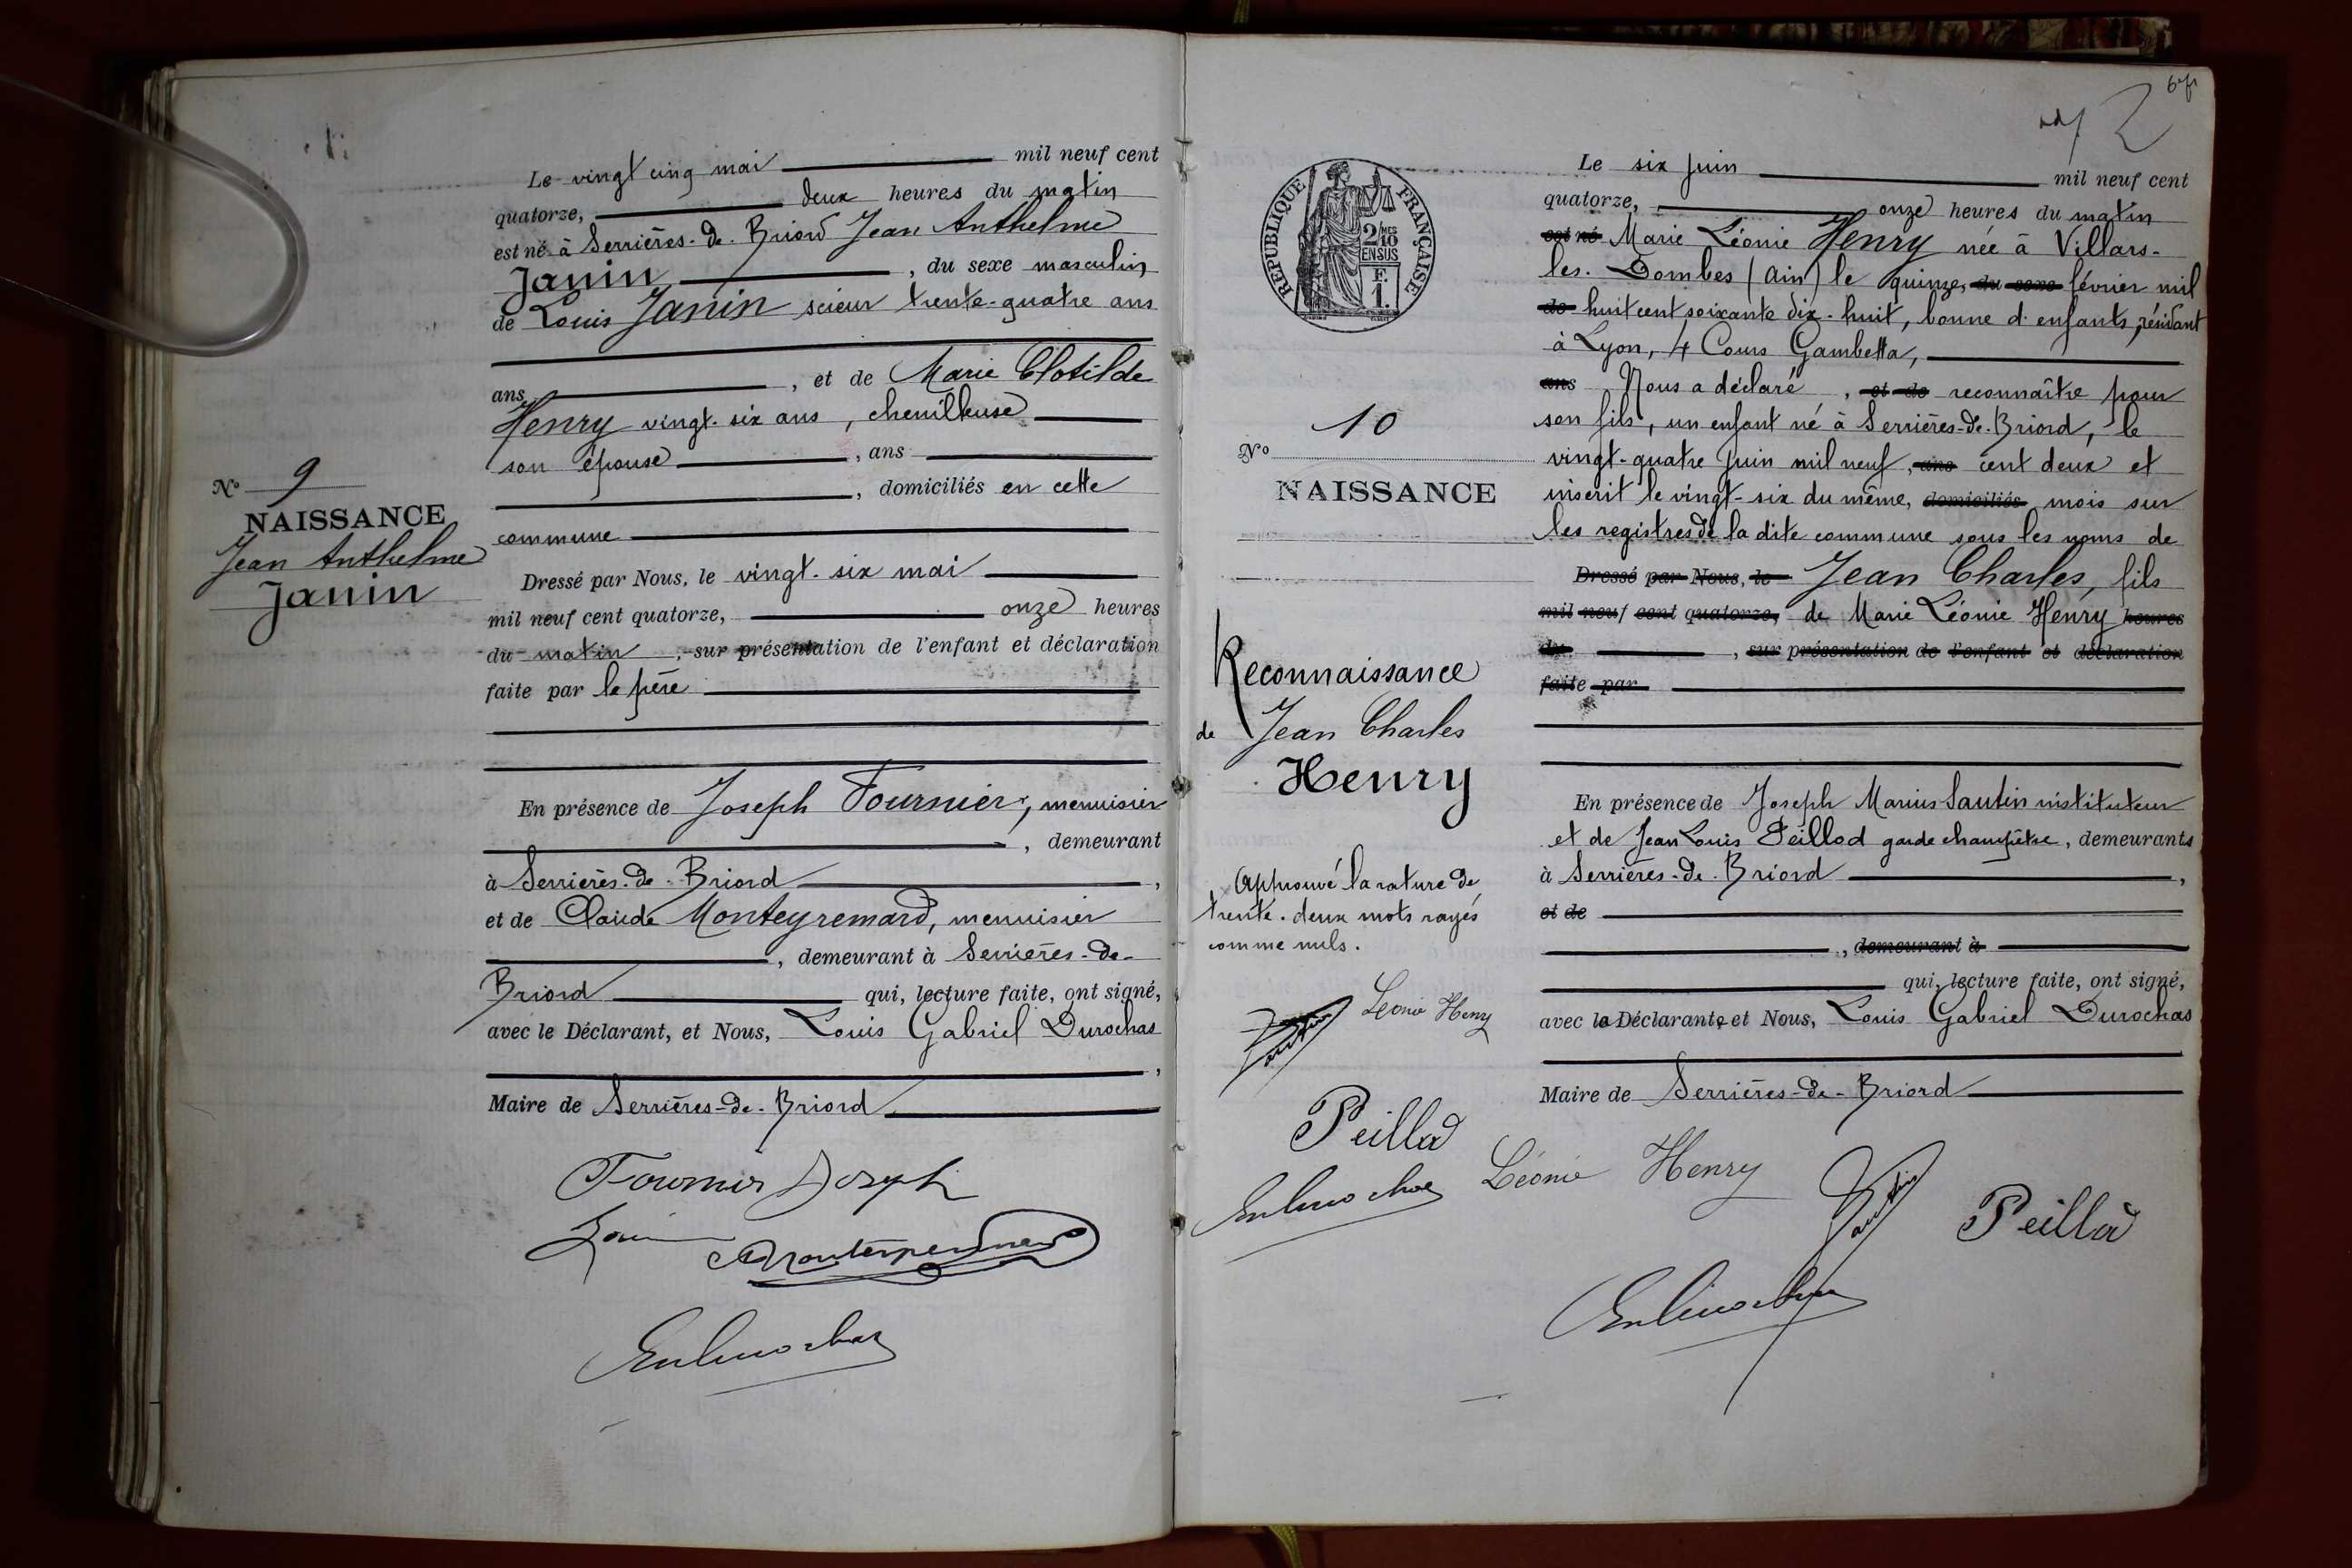 Le vingt cinq mai mil neuf cent
quatorze, deux heures du matin
est né à Serrières-de-Briord Jean Anthelme
Janin, du sexe masculin
de Louis Janin scieur trente-quatre ans
ans, et de Marie Clotilde
Henry vingt-six ans, chenilleuse
son épouse, ans
, domiciliés en cette
commune
Nº 9
NAISSANCE
Jean Anthelme
Janin
Dressé par Nous, le vingt-six mai
mil neuf cent quatorze, onze heures
du matin, sur présentation de l'enfant et déclaration
faite par le père
En présence de Joseph Fournier, menuisier
, demeurant
à Serrières-de-Briord,
et de Claude Monteyremard, menuisier
, demeurant à Serrières-de-
Briord qui, lecture faite, ont signé,
avec le Déclarant, et Nous, Louis Gabriel Durochas
,
Maire de Serrières-de-Briord
Fournier Joseph
72
RÉPUBLIQUE FRANÇAISE
2/10 MES
EN SUS
F.
1.
Nº 10
NAISSANCE
Reconnaissance
de Jean Charles
Henry
Approuvé la rature de
trente-deux mots rayés
comme nuls.
Léonie Henry
Sautin
Peillod
Le six juin mil neuf cent
quatorze, onze heures du matin
est né Marie Léonie Henry née à Villars-
les-Dombes (Ain) le quinze, du sexe février mil
de huit cent soixante dix-huit, bonne d'enfants, résidant
à Lyon, 4 Cours Gambetta,
ans Nous a déclaré, et de reconnaître pour
son fils, un enfant né à Serrières-de-Briord, le
vingt-quatre juin mil neuf, ans cent deux et
inscrit le vingt-six du même, domiciliés mois sur
les registres de la dite commune sous les noms de
Dressé par Nous, le Jean Charles, fils
mil neuf cent quatorze, de Marie Léonie Henry heures
du, sur présentation de l'enfant et déclaration
faite par
En présence de Joseph Marius Sautin instituteur
et de Jean Louis Peillod garde champêtre, demeurants
à Serrières-de-Briord,
et de
, demeurant à
qui, lecture faite, ont signé,
avec la Déclarante et Nous, Louis Gabriel Durochas
Maire de Serrières-de-Briord
Léonie Henry
Sautin
Peillod